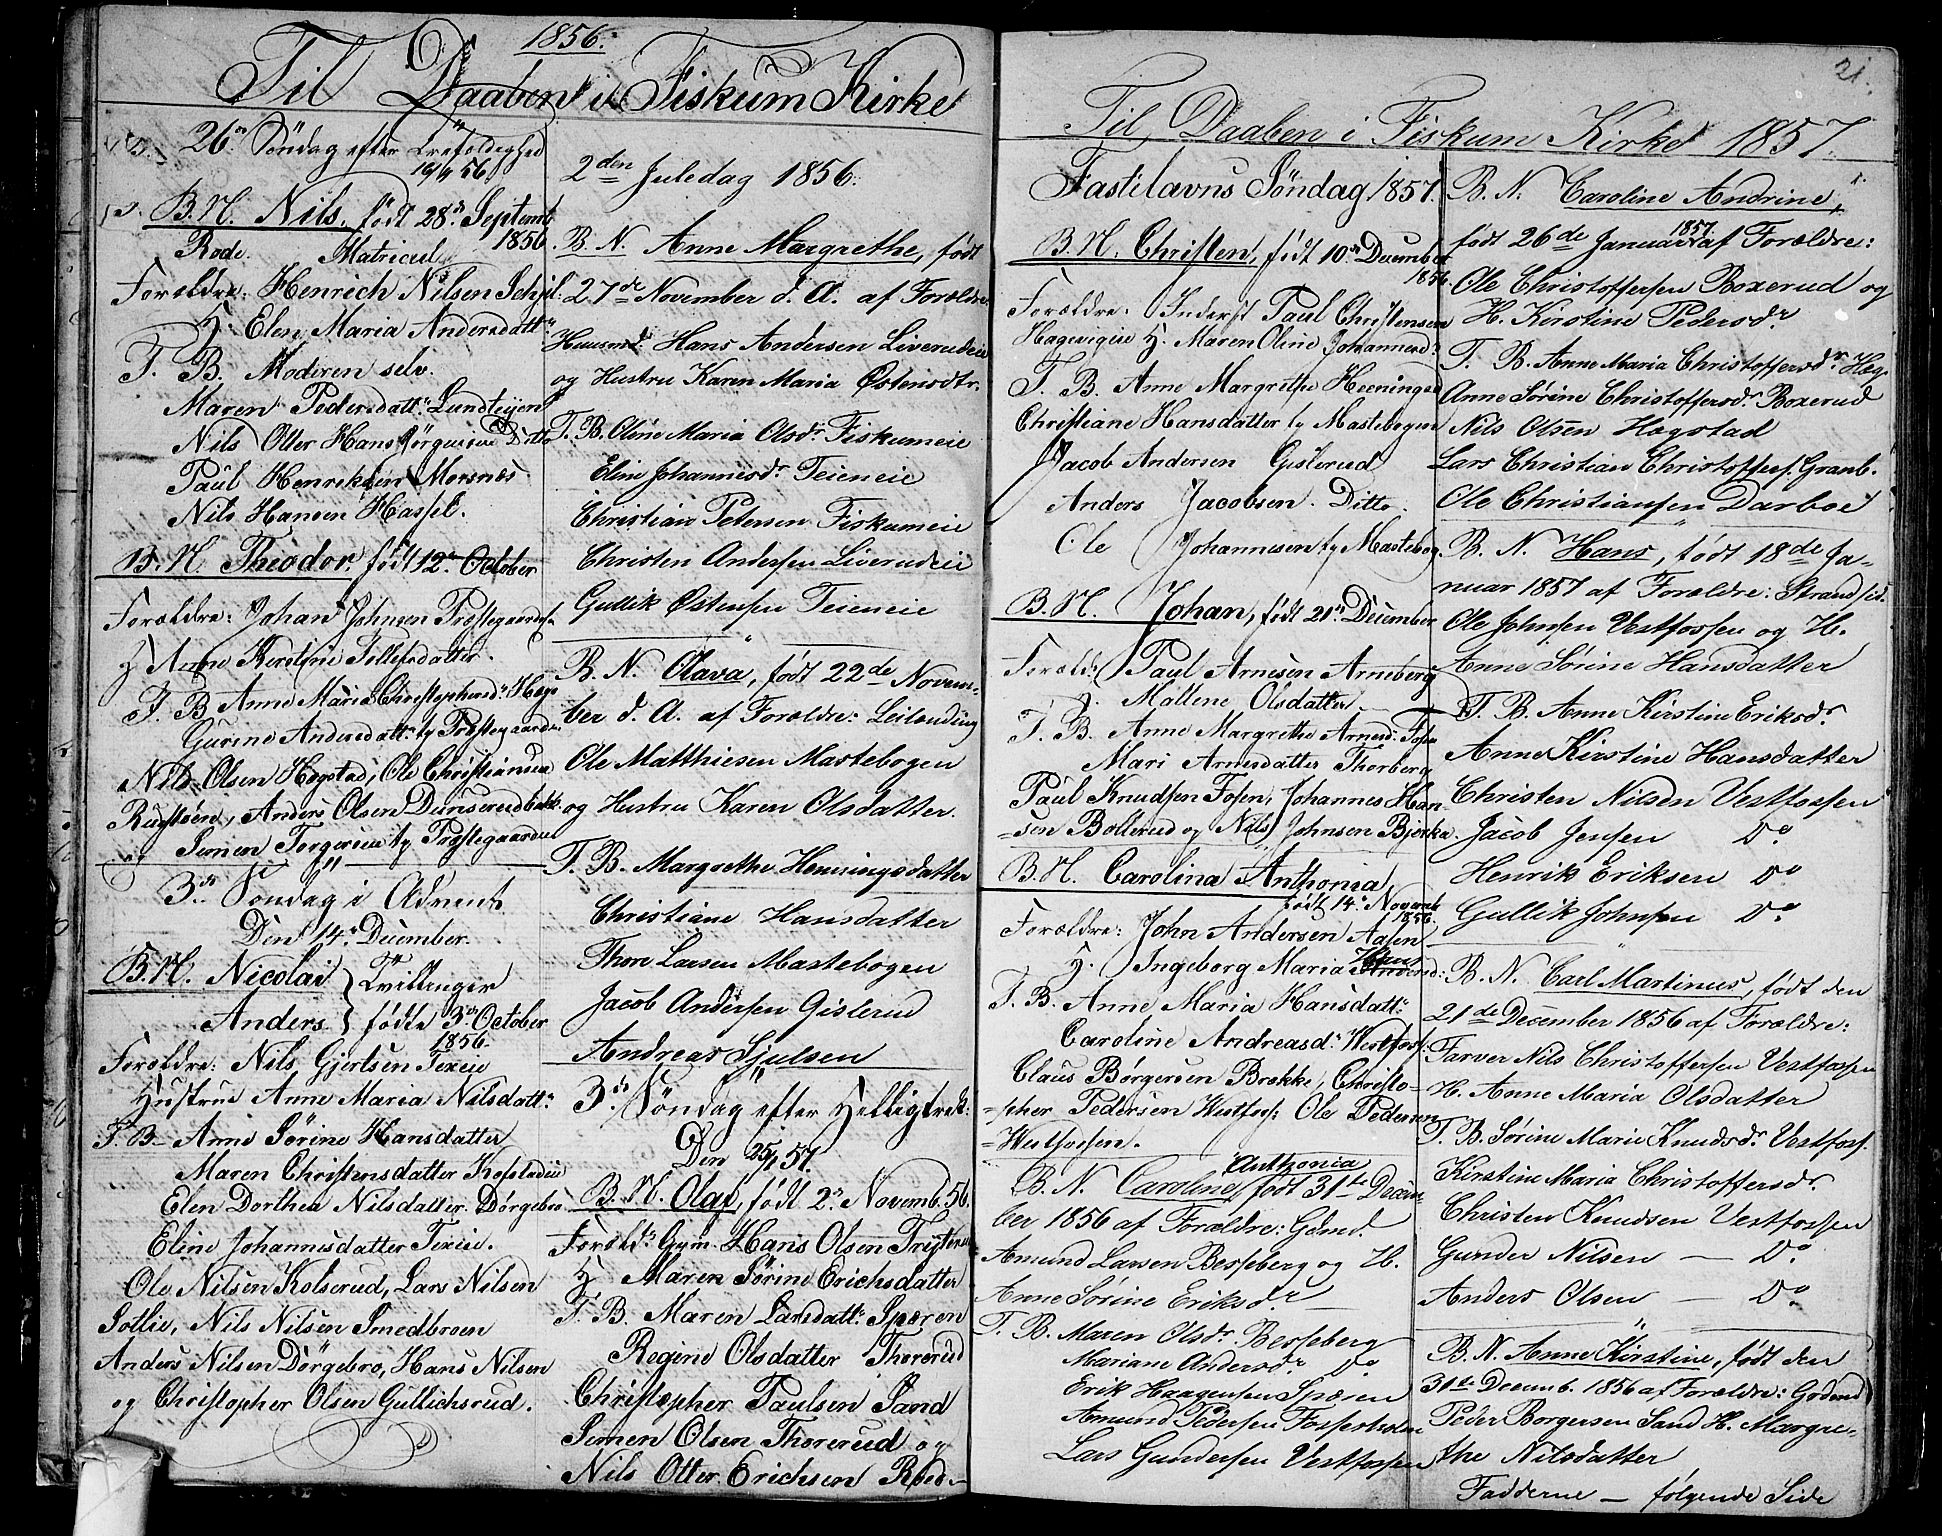 1856.
Til Daaben i Fiskum Kirke
26de Søndag efter Trefoldighed
16/11 56.
B. N. Nils, født 28de Septemb
1856
Rode. Matricul
Forældre: Henrich Nilsen
H. Elen Maria Andersdattr
T. B. Moderen selv.
Maren Pedersdattr Lundteijen
Nils Otter Hans Jørgensen Ditto
Paul Henriksen Morsnæs
Nils Hansen Hassel.
B. N. Theodor født 12te October
Forældre: Johan Johnsen Præstegaard
H. Anne Kirstine Tollefsdatter.
T. B. Anne Maria Christophersdr Hægs
Gurine Andersdattr fy Præstegaarden
Nils Olsen Hægstad, Ole Christiansen
Rustøen, Anders Olsen Dunserudbakk
og Simen Torgersen fy Præstegaarden
3die Søndag i Advent
Den 14de December.
B. N. Nicolai } Tvillinger
Anders } fødte 3die October
1856.
Forældre: Nils Gjertsen Teieie
Hustrue Anne Maria Nilsdattr
T. B. Anne Sørine Hansdatter
Maren Christensdatter Kopstadeie
Elen Dorthea Nilsdatter Dørgebro
Eline Johannisdatter Teieie.
Ole Nilsen Kolserud, Lars Nilsen
Sotlie, Nils Nilsen Smedbroen
Anders Nilsen Dørgebro, Hans Nilsen
og Christopher Olsen Gullichsrud.
2den Juledag 1856.
B. N. Anne Margrethe, født
27de November d. A. af Forældre
Huusmd. Hans Andersen Liverudeie
og Hustru Karen Maria Østensdtr.
T. B. Oline Maria Olsdr. Fiskumeie
Eline Johannesdr Teieneie
Christian Petersen Fiskumeie
Christen Andersen Liverudeie
Gullik Østensen Teieneie
B. N. Olava, født 22de Novem-
ber d. A. af Forældre: Leilænding
Ole Matthiesen Mastebogen
og Hustru Karen Olsdatter.
T. B. Margrethe Henningsdatter
Christiane Hansdatter
Thore Larsen Mastebogen
Jacob Andersen Gislerud
Andreas Sjulsen
3die Søndag efter Helligtrek:
Den 25/1 57.
B. N. Olaf, født 2de Novemb. 56.
Foræld: Gmd. Hans Olsen Trytere
H. Maren Sørine Erichsdatter
T. B. Maren Larsdattr Spæren
Regine Olsdatter Thorerud
Christopher Paulsen Sand
Simen Olsen Thorerud og
Nils Otter Erichsen Roed
21.
Til Daaben i Fiskum Kirke 1857.
Fastelavns Søndag 1857.
B. N. Christen, født 10de December
1856
Forældre: Inderst Paul Christensen
Hagevigeie H. Maren Oline Johannesd:
T. B. Anne Margrethe Henningsd
Christiane Hansdatter fy Mastebogen
Jacob Andersen Gislerud
Anders Jacobsen Ditto.
Ole Johannesen fy Mastebog.
B. N. Johan, født 21de December
Foræld: Paul Arnesen Arneberg
H. Mallene Olsdatter
T. B. Anne Margrethe Arnesd: Fosen
Mari Arnesdatter Thorberg
Paul Knudsen Fosen, Johannes Han-
sen Bollerud og Nils Johnsen Bjerka.
B. N. Carolina Anthonia,
født 14de Novemb
1856.
Forældre: John Andersen Aasen
H. Ingeborg Maria Hans
T. B. Anne Maria Hansdattr
Caroline Andreasd: Westfos:
Claus Børgersen Brække, Christo-
pher Pedersen Westfos: Ole Pedersen
Westfossen.
Anthonia
B. N. Caroline, født 31te Decem-
ber 1856 af Forældre: Gdmd.
Amund Larsen Besseberg og H.
Anne Sørine Eriksdr
T. B. Maren Olsdr Besseberg
Mariane Andersdr Do
Erik Haagensen Spæren
Amund Pedersen Fossesholm
Lars Gundersen Vestfossen
1.
B. N. Caroline Andrine,
født 26de Januar 1857 af Forældre:
Ole Christoffersen Boxerud og
H. Kirstine Pedersdr
T. B. Anne Maria Christoffersdr Hægs
Anne Sørine Christoffersdr Boxerud
Nils Olsen Hægstad
Lars Christian Christoffers. Granb.
Ole Christiansen Darboe
B. N. Hans, født 18de Ja-
nuar 1857 af Forældre: Strandsid.
Ole Johnsen Vestfossen og H.
Anne Sørine Hansdatter
T. B. Anne Kirstine Eriksdr
Anne Kirstine Hansdatter
Christen Nilsen Vestfossen
Jacob Jensen Do
Henrik Eriksen Do
Gullik Johnsen Do
B. N. Carl Martinus, født den
21de December 1856 af Forældre:
Farver Nils Christoffersen Vestfossen
H. Anne Maria Olsdatter
T. B. Sørine Marie Knudsdr Vestfoss.
Kirstine Maria Christoffersdr.
Christen Knudsen Vestfossen
Gunder Nilsen — Do
Anders Olsen — Do
B. N. Anne Kirstine, født den
31te Decemb. 1856 af Forældre: Gdmd
Peder Borgersen Sand H. Margre-
the Nilsdatter
Fadderne — følgende Side